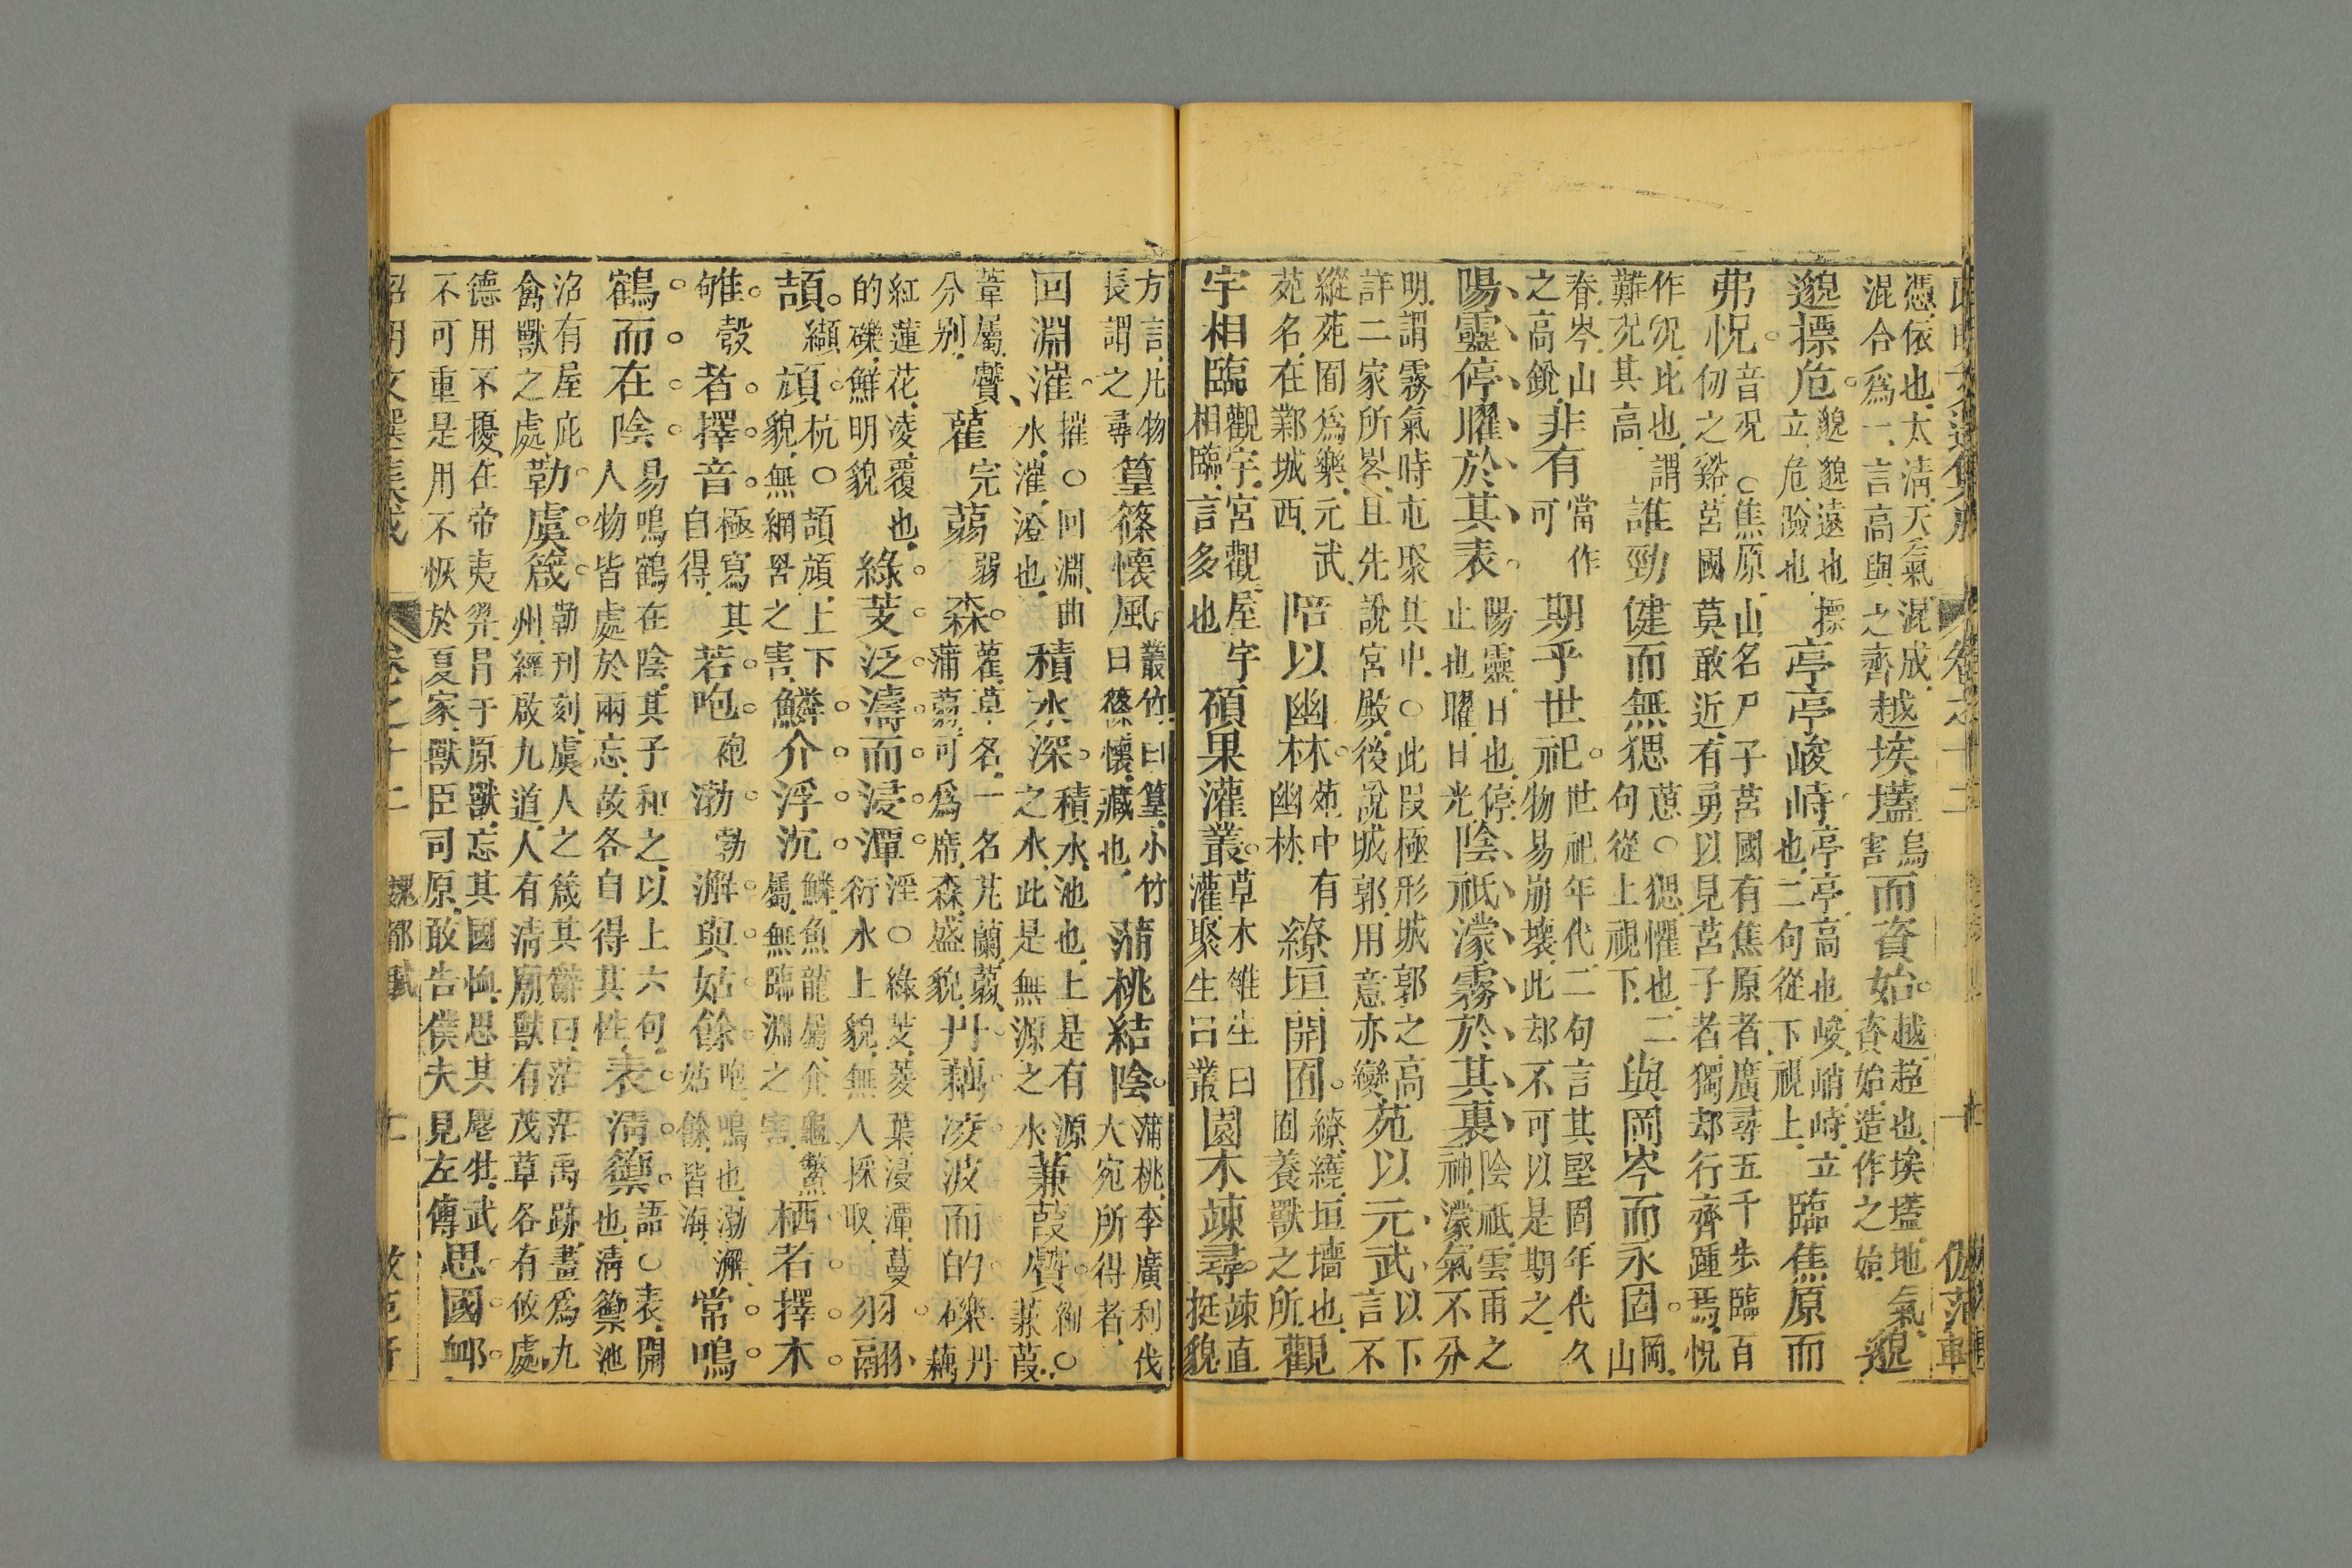 憑依也太清天氣混成混合爲一言高與之齊越埃壒烏害而資始越超也埃壒地氣資始造作之始邈
邈摽危邈邈遠也摽立危險也亭亭峻峙亭亭高也峻峭峙立也二句從下視上臨焦原而
弗怳音况○焦原山名尸子莒國有焦原者廣尋五千步臨百仞之谿莒國莫敢近有勇以見莒子者獨却行齊踵焉怳
作况此也謂難况其高誰勁健而無葸○懼也二句從上視下與岡岑而永固岡山
脊岑山之高銳非有當作可期乎世祀世祀年代二句言其堅固年代久物易崩壞此却不可以是期之
陽靈停曜於其表陽靈日也停止也曜日光陰祇濛霧於其裏陰祇雲雨之神濛氣不分
明謂霧氣時屯聚其中○此段極形城郭之高詳二家所畧且先說宮殿後說城郭用意亦變苑以元武以下言不
縱苑囿爲樂元武苑名在鄴城西陪以幽林苑中有幽林繚垣開囿繚繞垣墻也囿養獸之所觀
宇相臨觀宇宮觀屋宇相臨言多也碩果灌叢草木雜生曰灌聚生曰叢園木竦尋竦直挺貌
方言凡物長謂之尋篁篠懷風叢竹曰篁小竹曰篠懷藏也蒲桃結陰蒲桃李廣利伐大宛所得者
回淵漼摧○回淵曲水漼澄也積水深積水池也上是有源之水此是無源之水蒹葭贙絢○蒹葭
葦屬贙分別雚完蒻弱森雚草名一名芄蘭蒻蒲蒻可爲席森盛貌丹藕凌波而的礫丹藕
紅蓮花凌覆也的礫鮮明貌綠芰泛濤而浸潭淫○綠芰菱葉浸潭蔓衍水上貌無人採取羽翮
頡纈頏杭○頡頏上下貌無網罟之害鱗介浮沉鱗魚龍屬介龜鱉屬無臨淵之害栖者擇木
雊彀者擇音極寫其自得若咆袍渤勃澥與姑餘咆鳴也渤澥姑餘皆海常鳴
鶴而在陰易鳴鶴在陰其子和之以上六句人物皆處於兩忘故各自得其性表清籞語○表開也清籞池
沼有屋庇禽獸之處勒虞箴勒刊刻虞人之箴其辭曰茫茫禹跡畫爲九州經啟九道人有清廟獸有茂草各有攸處
德用不擾在帝夷羿冒于原獸忘其國恤思其麀牡武不可重是用不恢於夏家獸臣司原敢告僕夫見左傳思國䘏
昭明文選集成 卷之十二 魏都賦